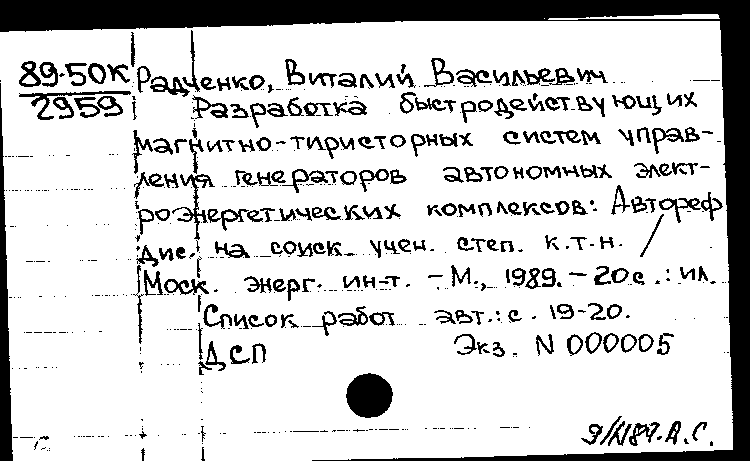 89-50К
2959
Радченко, Виталий Васильевич
Разработка быстродействующих
магнитно-тиристорных систем управ-
ления генераторов автономных элект-
роэнергетических комплексов: Автореф
дис. на соиск. учен. степ. к.т.н. /
Моск. энерг. ин-т. - М., 1989. - 20с.: ил.
Список работ авт.: с. 19-20.
ДСП Экз. N 000005
А.С.